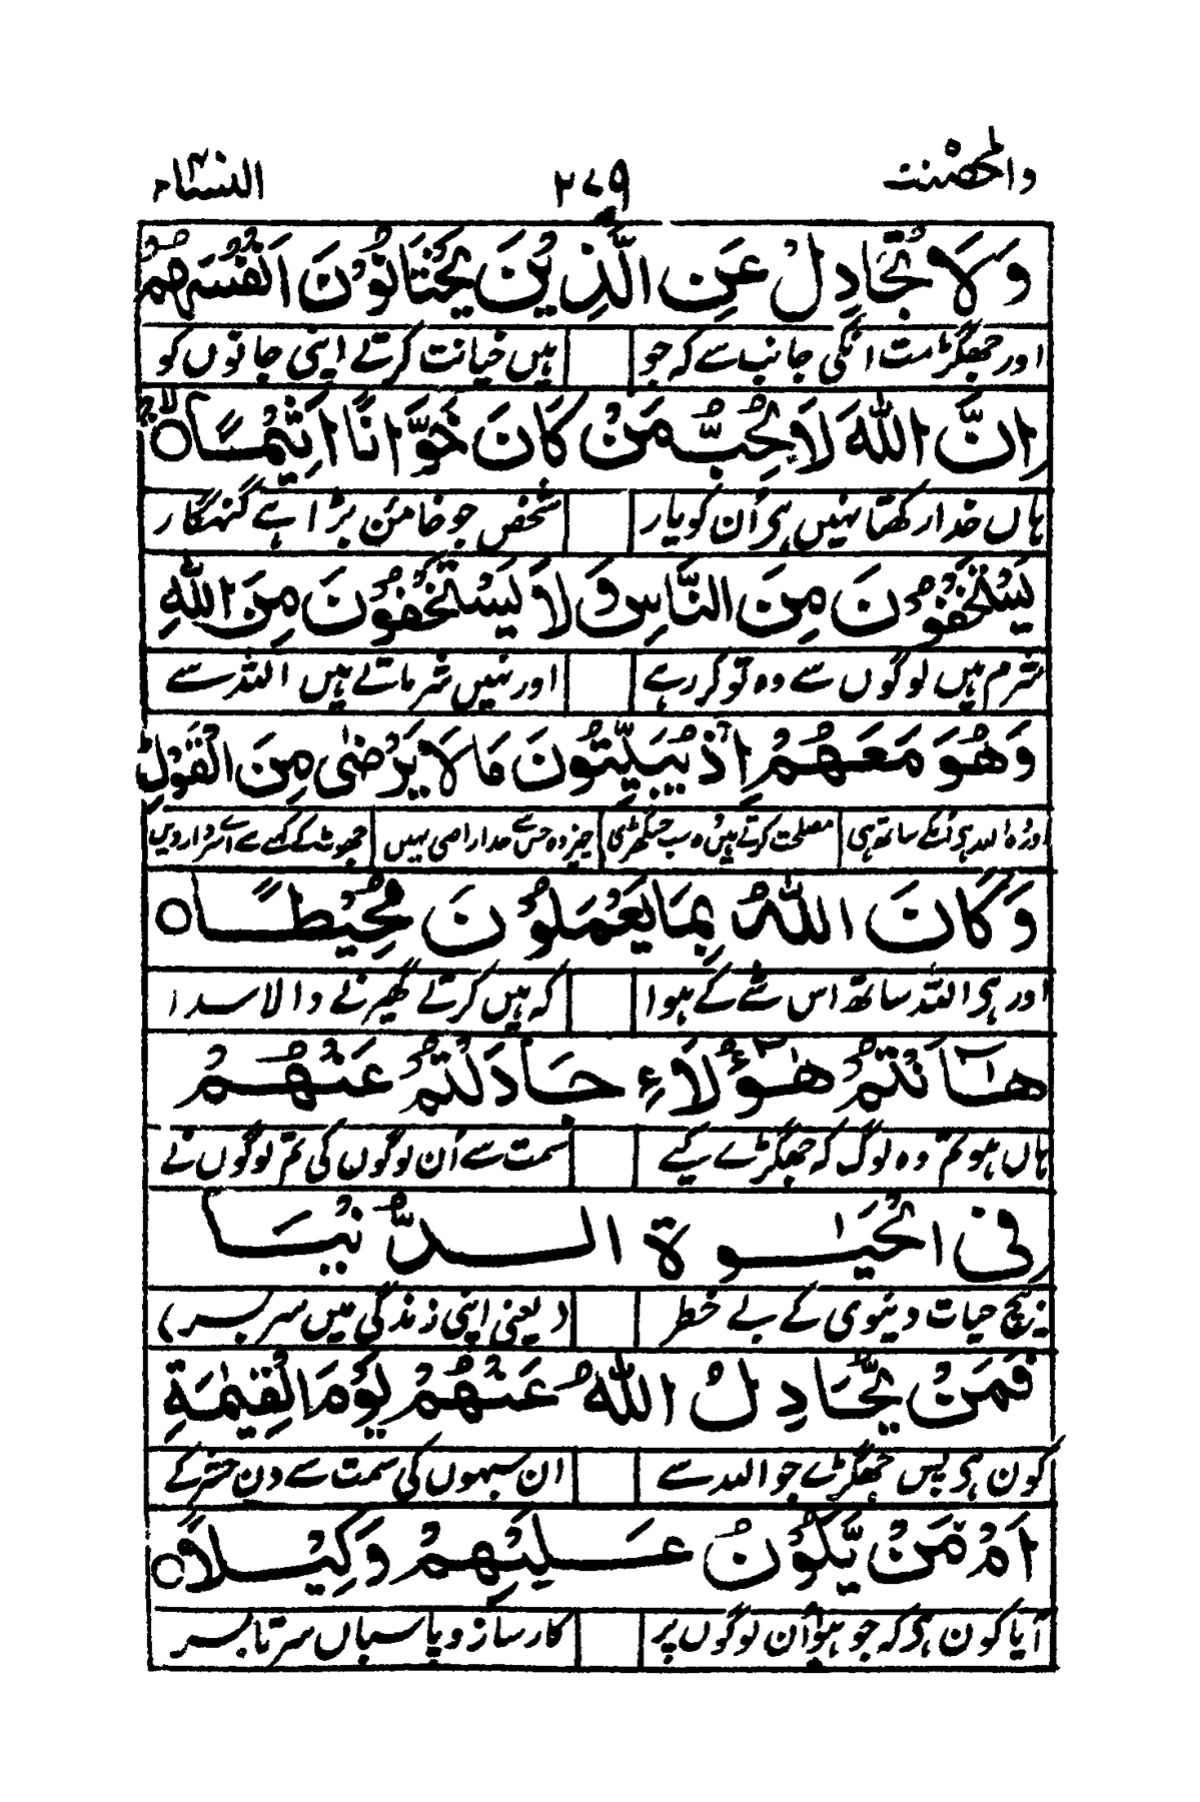 والمحصنت ٢٧٩ النساء ٤
وَلَا تُجَادِلْ عَنِ الَّذِيْنَ يَخْتَانُوْنَ اَنْفُسَهُمْ
اور جھگڑ مت انکی جانب سے کہ جو ہیں خیانت کرتے اپنی جانوں کو
اِنَّ اللّٰهَ لَا يُحِبُّ مَنْ كَانَ خَوَّانًا اَثِيْمًا ○
ہاں خدا رکھتا نہیں ہی اُن کو یار شخص جو خائن بڑا ہے گنہگار
يَّسْتَخْفُوْنَ مِنَ النَّاسِ وَلَا يَسْتَخْفُوْنَ مِنَ اللّٰهِ
شرم ہیں لوگوں سے وہ تو کر رہے اور نہیں شرماتے ہیں اللہ سے
وَهُوَ مَعَهُمْ اِذْ يُبَيِّتُوْنَ مَا لَا يَرْضٰى مِنَ الْقَوْلِ ط
اور وہ اللہ ہی اُنکے ساتھ ہی مصلحت کرتے ہیں وہ جب جس گھڑی چیز وہ جس سے خدا راضی نہیں جھوٹ کے کہنے سے
وَكَانَ اللّٰهُ بِمَا يَعْمَلُوْنَ مُحِيْطًا ○
اور ہی اللہ ساتھ اس شے کے ہوا کہ ہیں کرتے گھیرنے والا سدا
هٰٓاَنْتُمْ هٰٓؤُلَآءِ جَادَلْتُمْ عَنْهُمْ
ہاں ہو تم وہ لوگ کہ جھگڑے کیے سمت سے اُن لوگوں کی تم لوگوں نے
فِى الْحَيٰوةِ الدُّنْيَا
بیچ حیات دینوی کے بے خطر (یعنی اپنی زندگی میں سربسر)
فَمَنْ يُّجَادِلُ اللّٰهَ عَنْهُمْ يَوْمَ الْقِيٰمَةِ
کون ہی پس جھگڑے جو اللہ سے ان سبھوں کی سمت سے دن حشر کے
اَمْ مَّنْ يَّكُوْنُ عَلَيْهِمْ وَكِيْلًا ○
آیا کون ہی کہ جو ہو اُن لوگوں پر کارساز و پاسباں سرتابسر